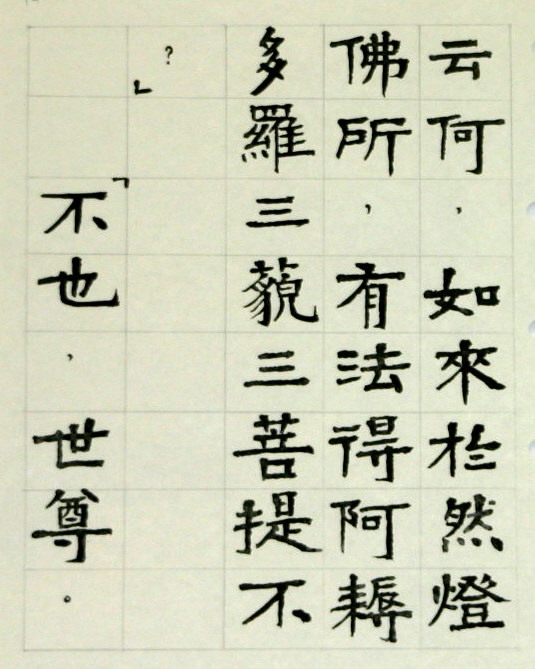 云何，如來於然燈
佛所，有法得阿耨
多羅三藐三菩提不
？」
「不也，世尊。